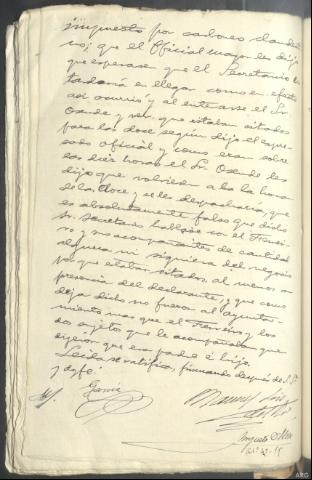 impuesto por carbones clandesti
no; que el Oficial mayor les dijo
que esperase que el Secretario no
tardaria en llegar como en efecto
asi ocurrió y al enterarse el Sr.
Osende y ver que estaban citados
para las doce según dijo el expre-
sado oficial y como eran sobre
las diez horas el Sr. Osende les
dijo que volviesen a la hora
de las doce y se les despacharia, que
es absolutamente falso que dicho
Sr. Secretario hablase con el Francis-
co y sus acompañantes de cantidad
alguna ni siquiera del negocio
por que estaban citados, al menos a
presencia del declarante, y que como
deja dicho no fueron al ayunta-
miento mas que el Francisco y los
dos sujetos que le acompañaban que
dijeron que eran padre é hijo.
Leida se ratifica, firmando después de S.Sª.
y doy fe.
Garcia
Manuel
Augusto
ARG